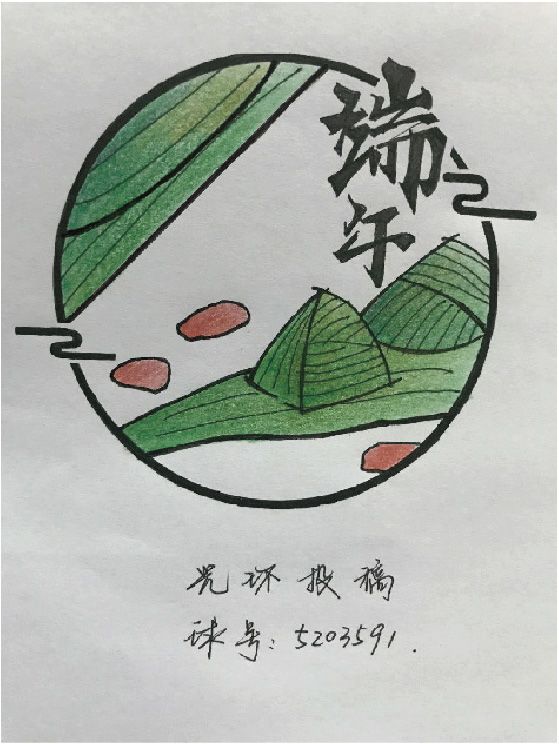 端午
光环投稿
球号:5203591.